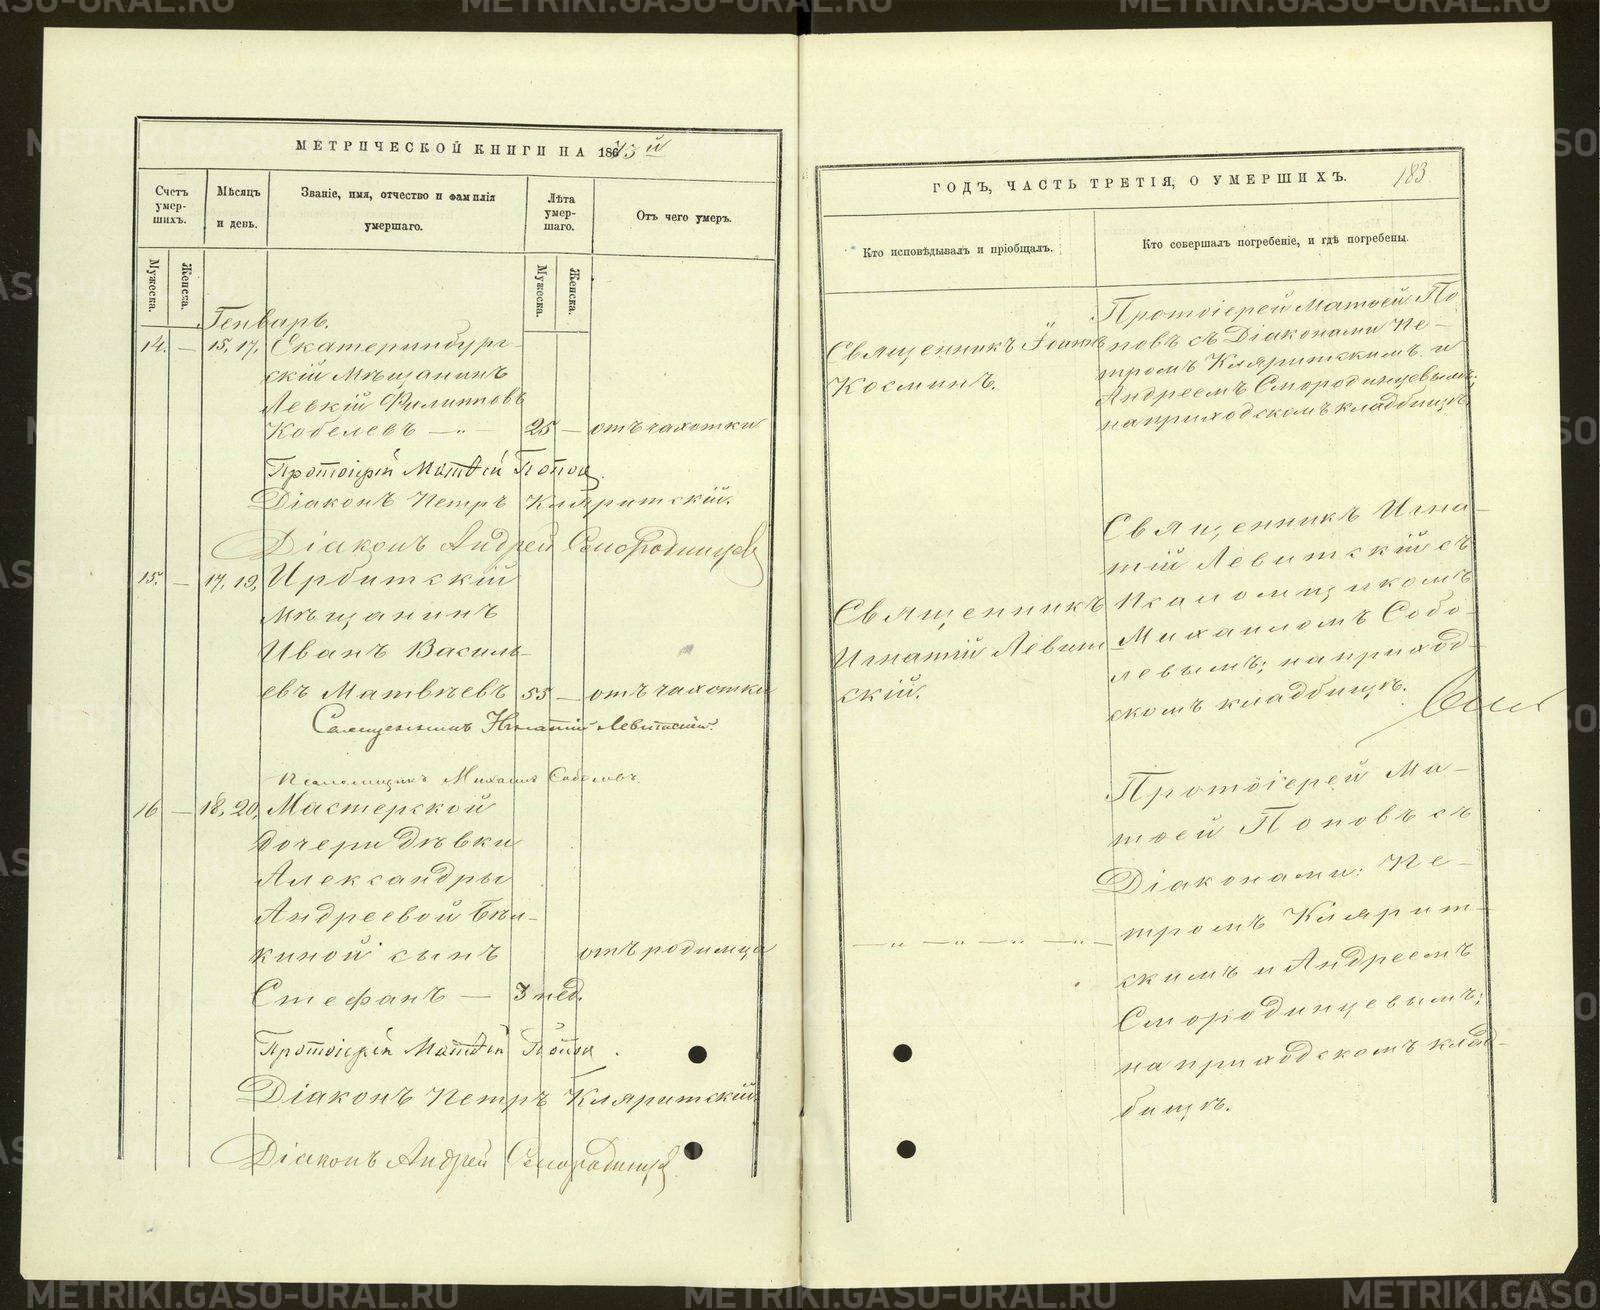 МЕТРИЧЕСКОЙ КНИГИ НА 1873й
Счетъ умер-шихъ.
Мѣсяцъ и день.
Званіе, имя, отчество и фамилія умершаго.
Лѣта умер-шаго.
Отъ чего умеръ.
Мужеска.
Женска.
Мужеска.
Женска.
Генварь.
14. — 15, 17, Екатеринбург-
скій мѣщанинъ
Левкій Филипповъ
Кобелевъ — „ — 25 — отъ чахотки
Протоіерей Матѳей Попов.
Діаконъ Петръ Кляритскій.
Діаконъ Андрей Смородинцев
15. — 17, 19, Ирбитскій
мѣщанинъ
Иванъ Василь-
евъ Матвѣевъ 55 — отъ чахотки
Священникъ Игнатій Левитскій.
Псаломщикъ Михаилъ Соболевъ.
16 — 18, 20, Мастерской
дочери дѣвки
Александры
Андреевой Бѣл-
киной сынъ отъ родимца
Стефанъ — 3 нед.
Протоіерей Матѳей Попов.
Діаконъ Петръ Кляритскій
Діаконъ Андрей Смородинцев
ГОДЪ, ЧАСТЬ ТРЕТІЯ, О УМЕРШИХЪ. 183
Кто исповѣдывалъ и пріобщалъ.
Кто совершалъ погребеніе, и гдѣ погребены.
Священникъ Іоаннъ
Косминъ.
Протоіерей Матѳей По-
повъ съ Діаконами Пе-
тромъ Кляритскимъ и
Андреемъ Смородинцевымъ;
на приходскомъ кладбищѣ.
Священникъ
Игнатій Левит-
скій.
Священникъ Игна-
тій Левитскій съ
Псаломщикомъ
Михаиломъ Собо-
левымъ; на приход-
скомъ кладбищѣ.
— „ — „ — „ — „ —
Протоіерей Ма-
тѳей Поповъ съ
Діаконами: Пе-
тромъ Клярит-
скимъ и Андреемъ
Смородинцевымъ;
на приходскомъ клад-
бищѣ.
METRIKI.GASO-URAL.RU